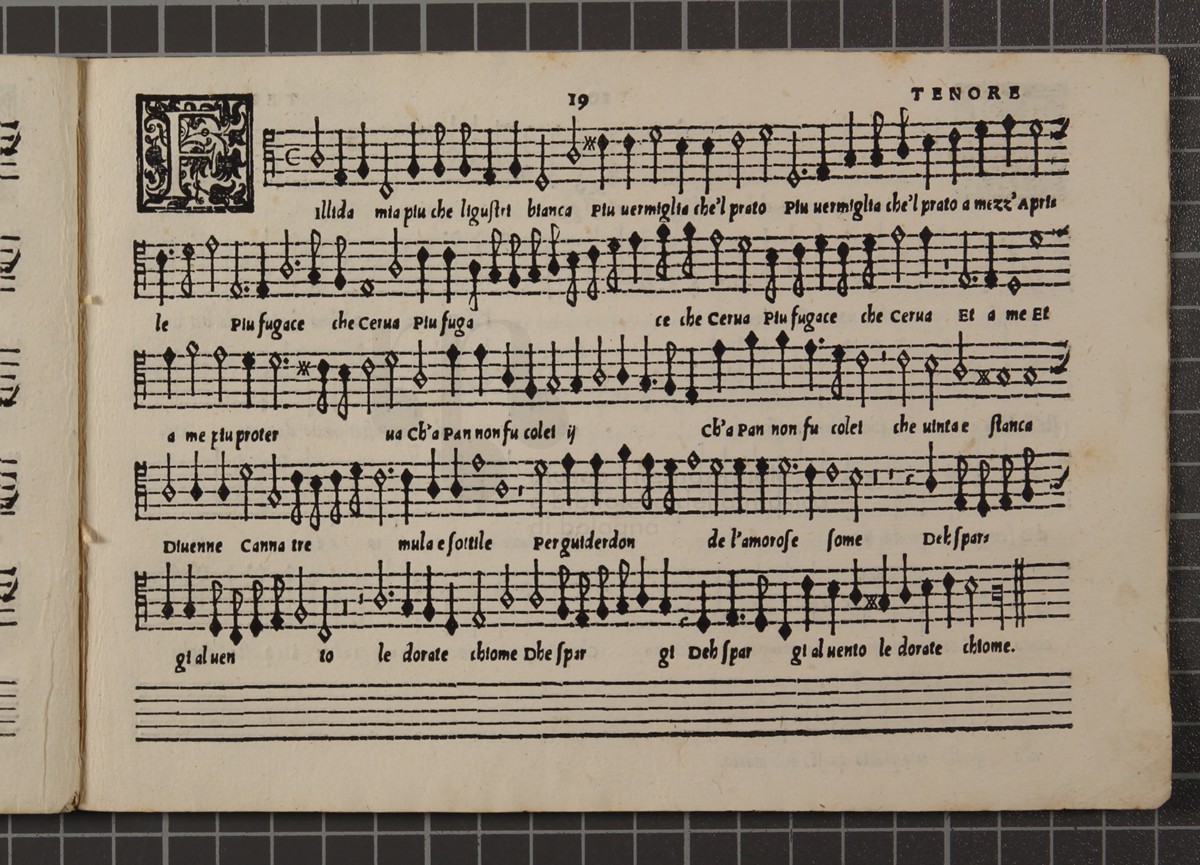 19 TENORE
FIllida mia piu che liguſtri bianca Piu uermiglia che'l prato Piu uermiglia che'l prato a mezz'Apri
le Piu fugace che Cerua Piu fuga ce che Cerua Piu fugace che Cerua Et a me Et
a me piu proter ua Ch'a Pan non fu colei ij Ch'a Pan non fu colei che uinta e ſtanca
Diuenne Canna tre mula e ſottile Per guiderdon de l'amoroſe ſome Deh ſpar
gi al uen to le dorate chiome Dhe ſpar gi Deh ſpar gi al uento le dorate chiome.